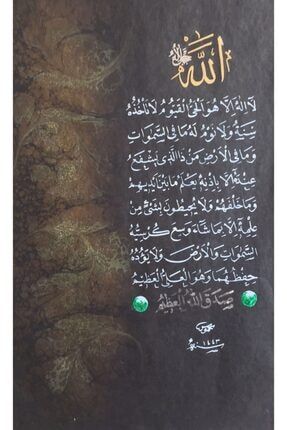 الله جل جلاله
لا اله الا هو الحي القيوم لا تأخذه
سنة ولا نوم له ما في السموات
وما في الارض من ذا الذي يشفع
عنده الا باذنه يعلم ما بين ايديهم
وما خلفهم ولا يحيطون بشئ من
علمه الا بما شاء وسع كرسيه
السموات والارض ولا يؤده
حفظهما وهو العلي العظيم
صدق الله العظيم
سنة ١٤٤٣